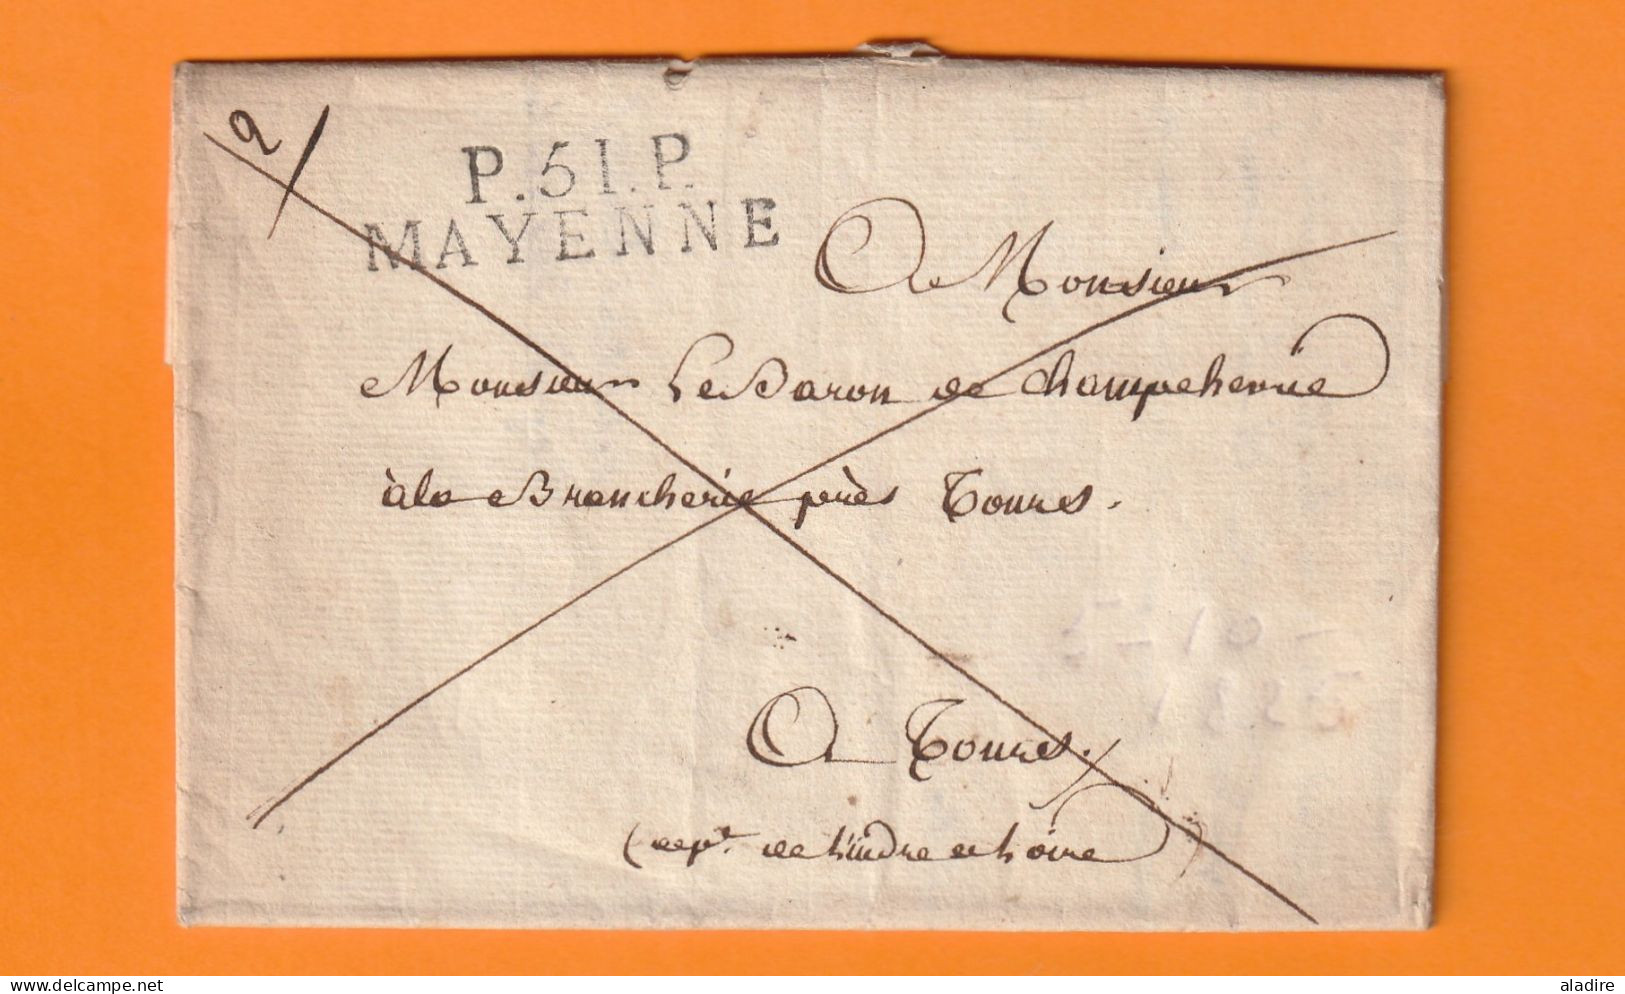 2
P.51.P.
MAYENNE
A Monsieur
Monsieur Le Baron de Champchevrié
à la Brancherie près Tours.
A Tours,
(dept. de L'indre et Loire)
aladire